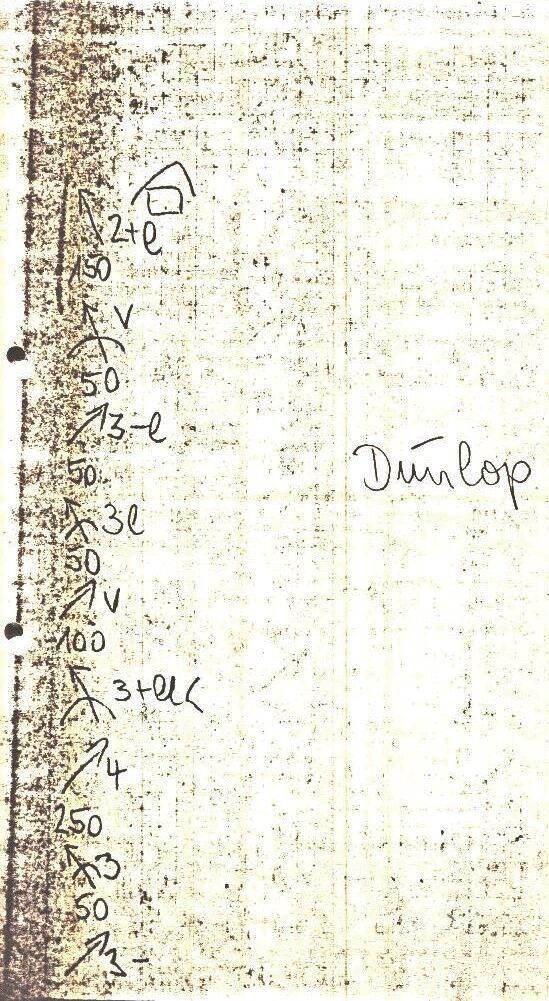 2+e
150
v
50
3-e
50
Dunlop
3e
50
v
100
3+
4
250
3
50
3-